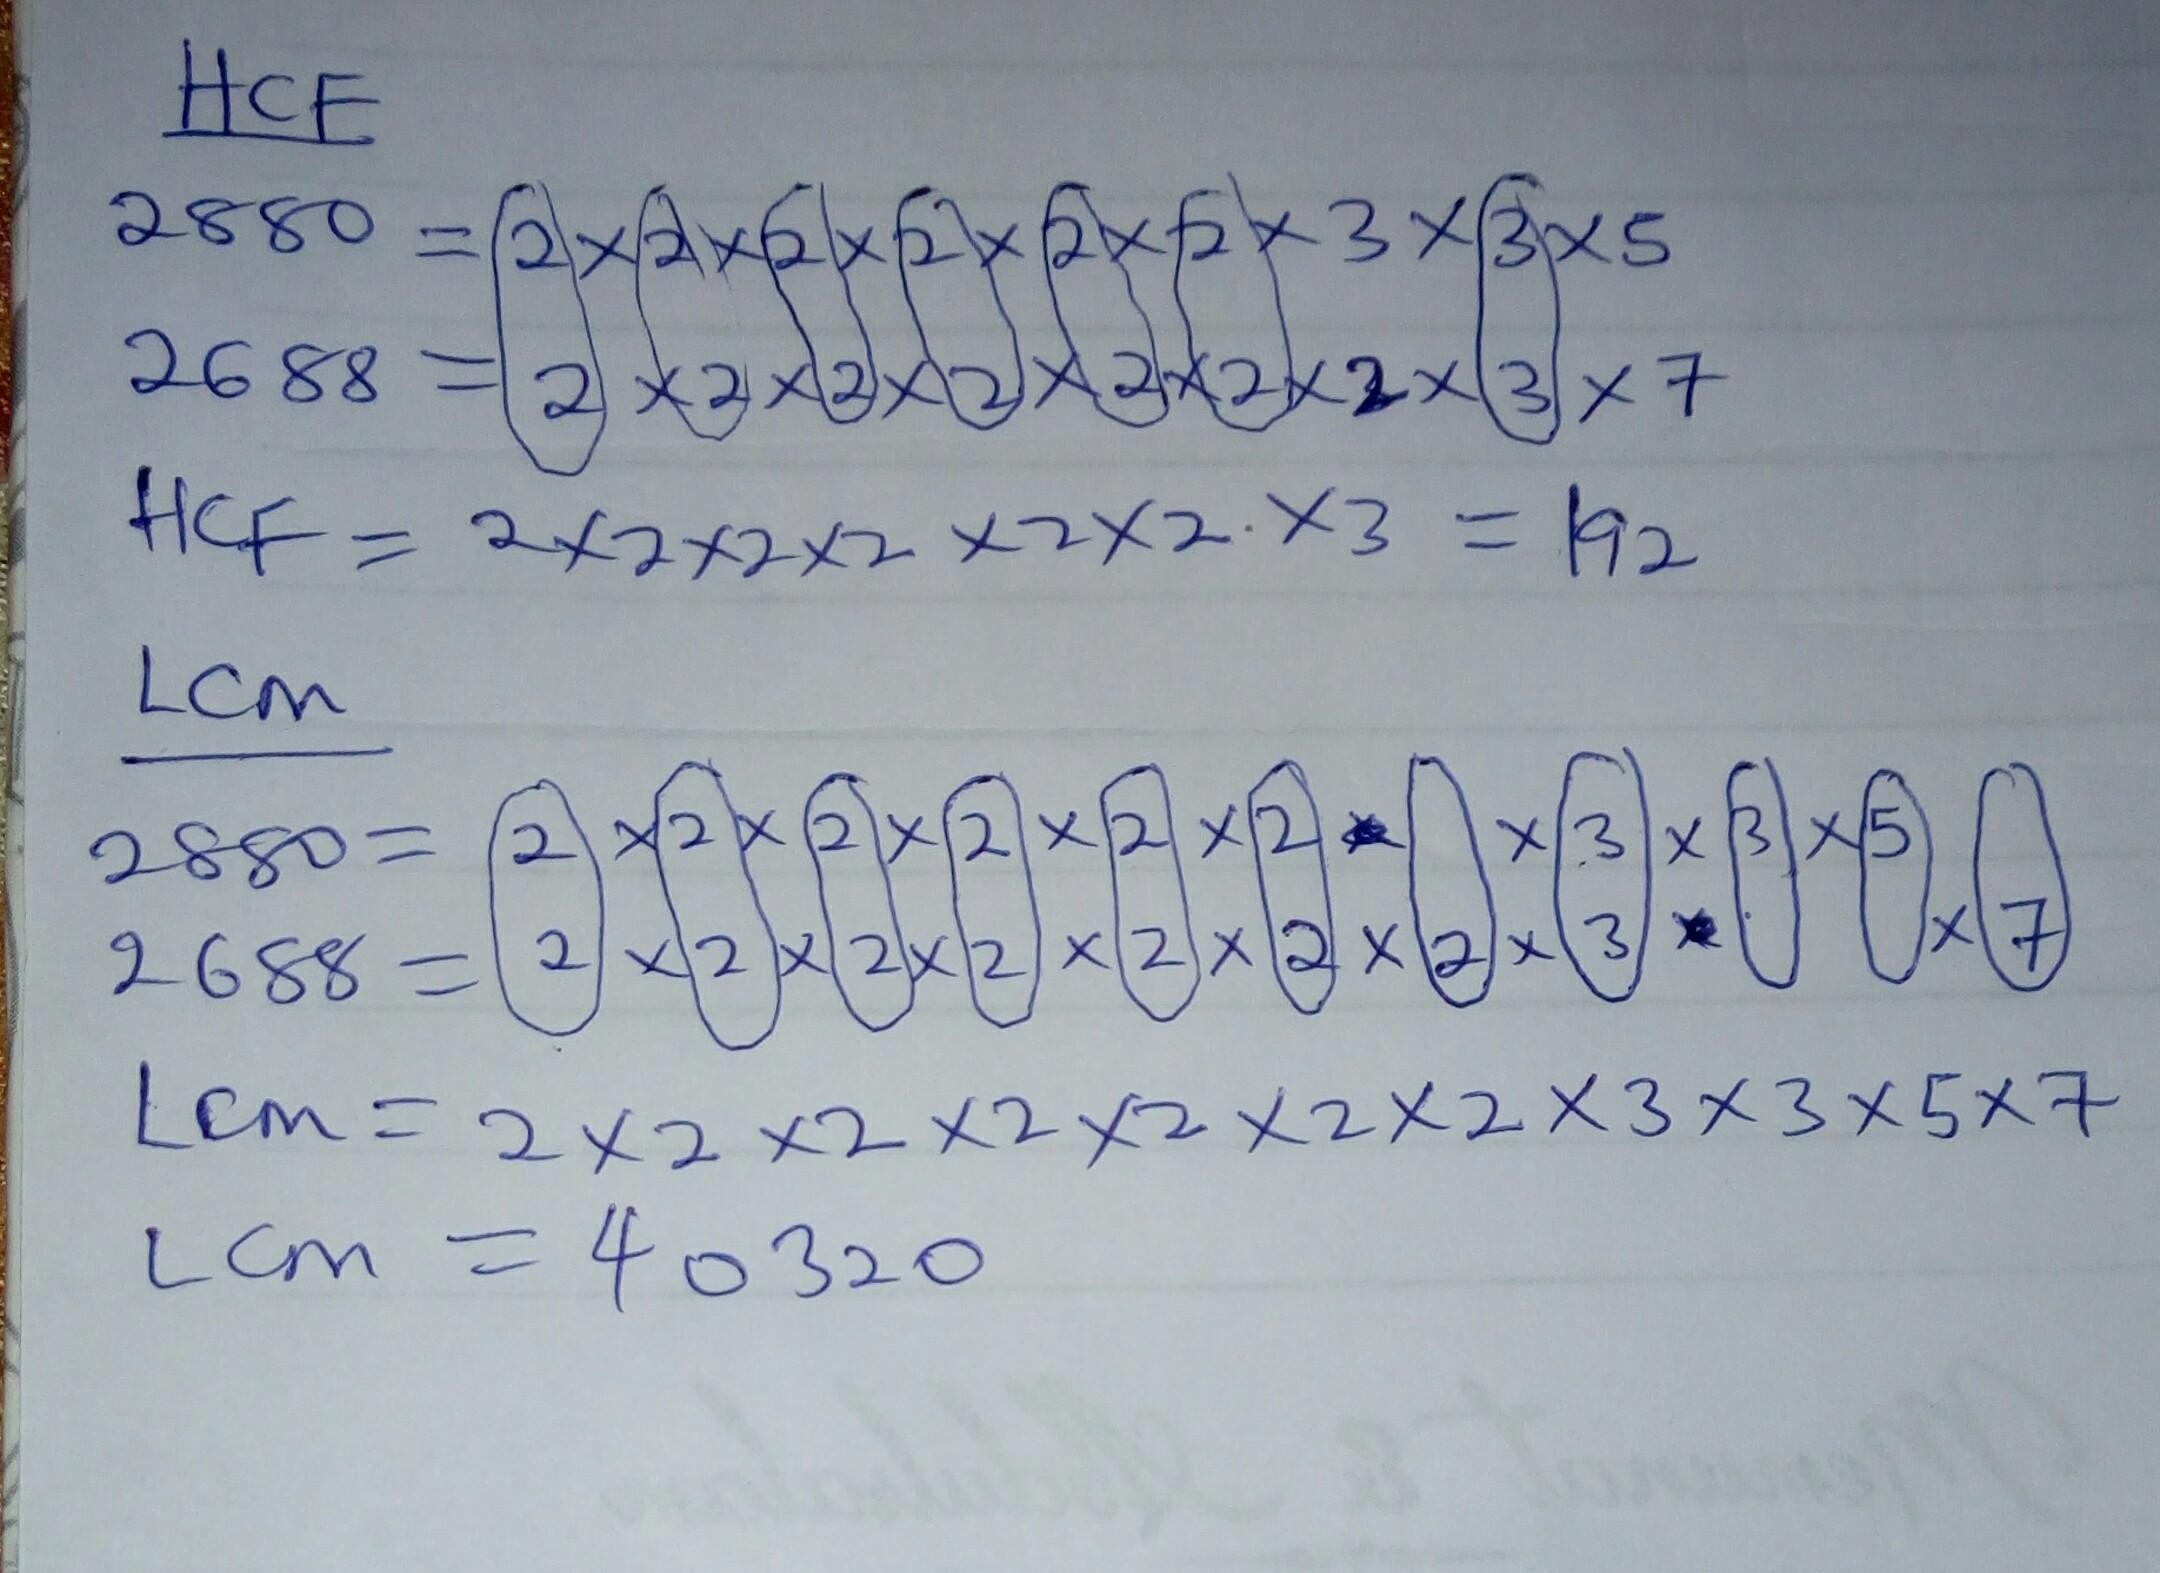 HCF
2880 = 2 × 2 × 2 × 2 × 2 × 2 × 3 × 3 × 5
2688 = 2 × 2 × 2 × 2 × 2 × 2 × 2 × 3 × 7
HCF = 2 × 2 × 2 × 2 × 2 × 2 × 3 = 192
LCM
2880 = 2 × 2 × 2 × 2 × 2 × 2 × 3 × 3 × 5
2688 = 2 × 2 × 2 × 2 × 2 × 2 × 2 × 3 × 7
LCM = 2 × 2 × 2 × 2 × 2 × 2 × 2 × 3 × 3 × 5 × 7
LCM = 40320